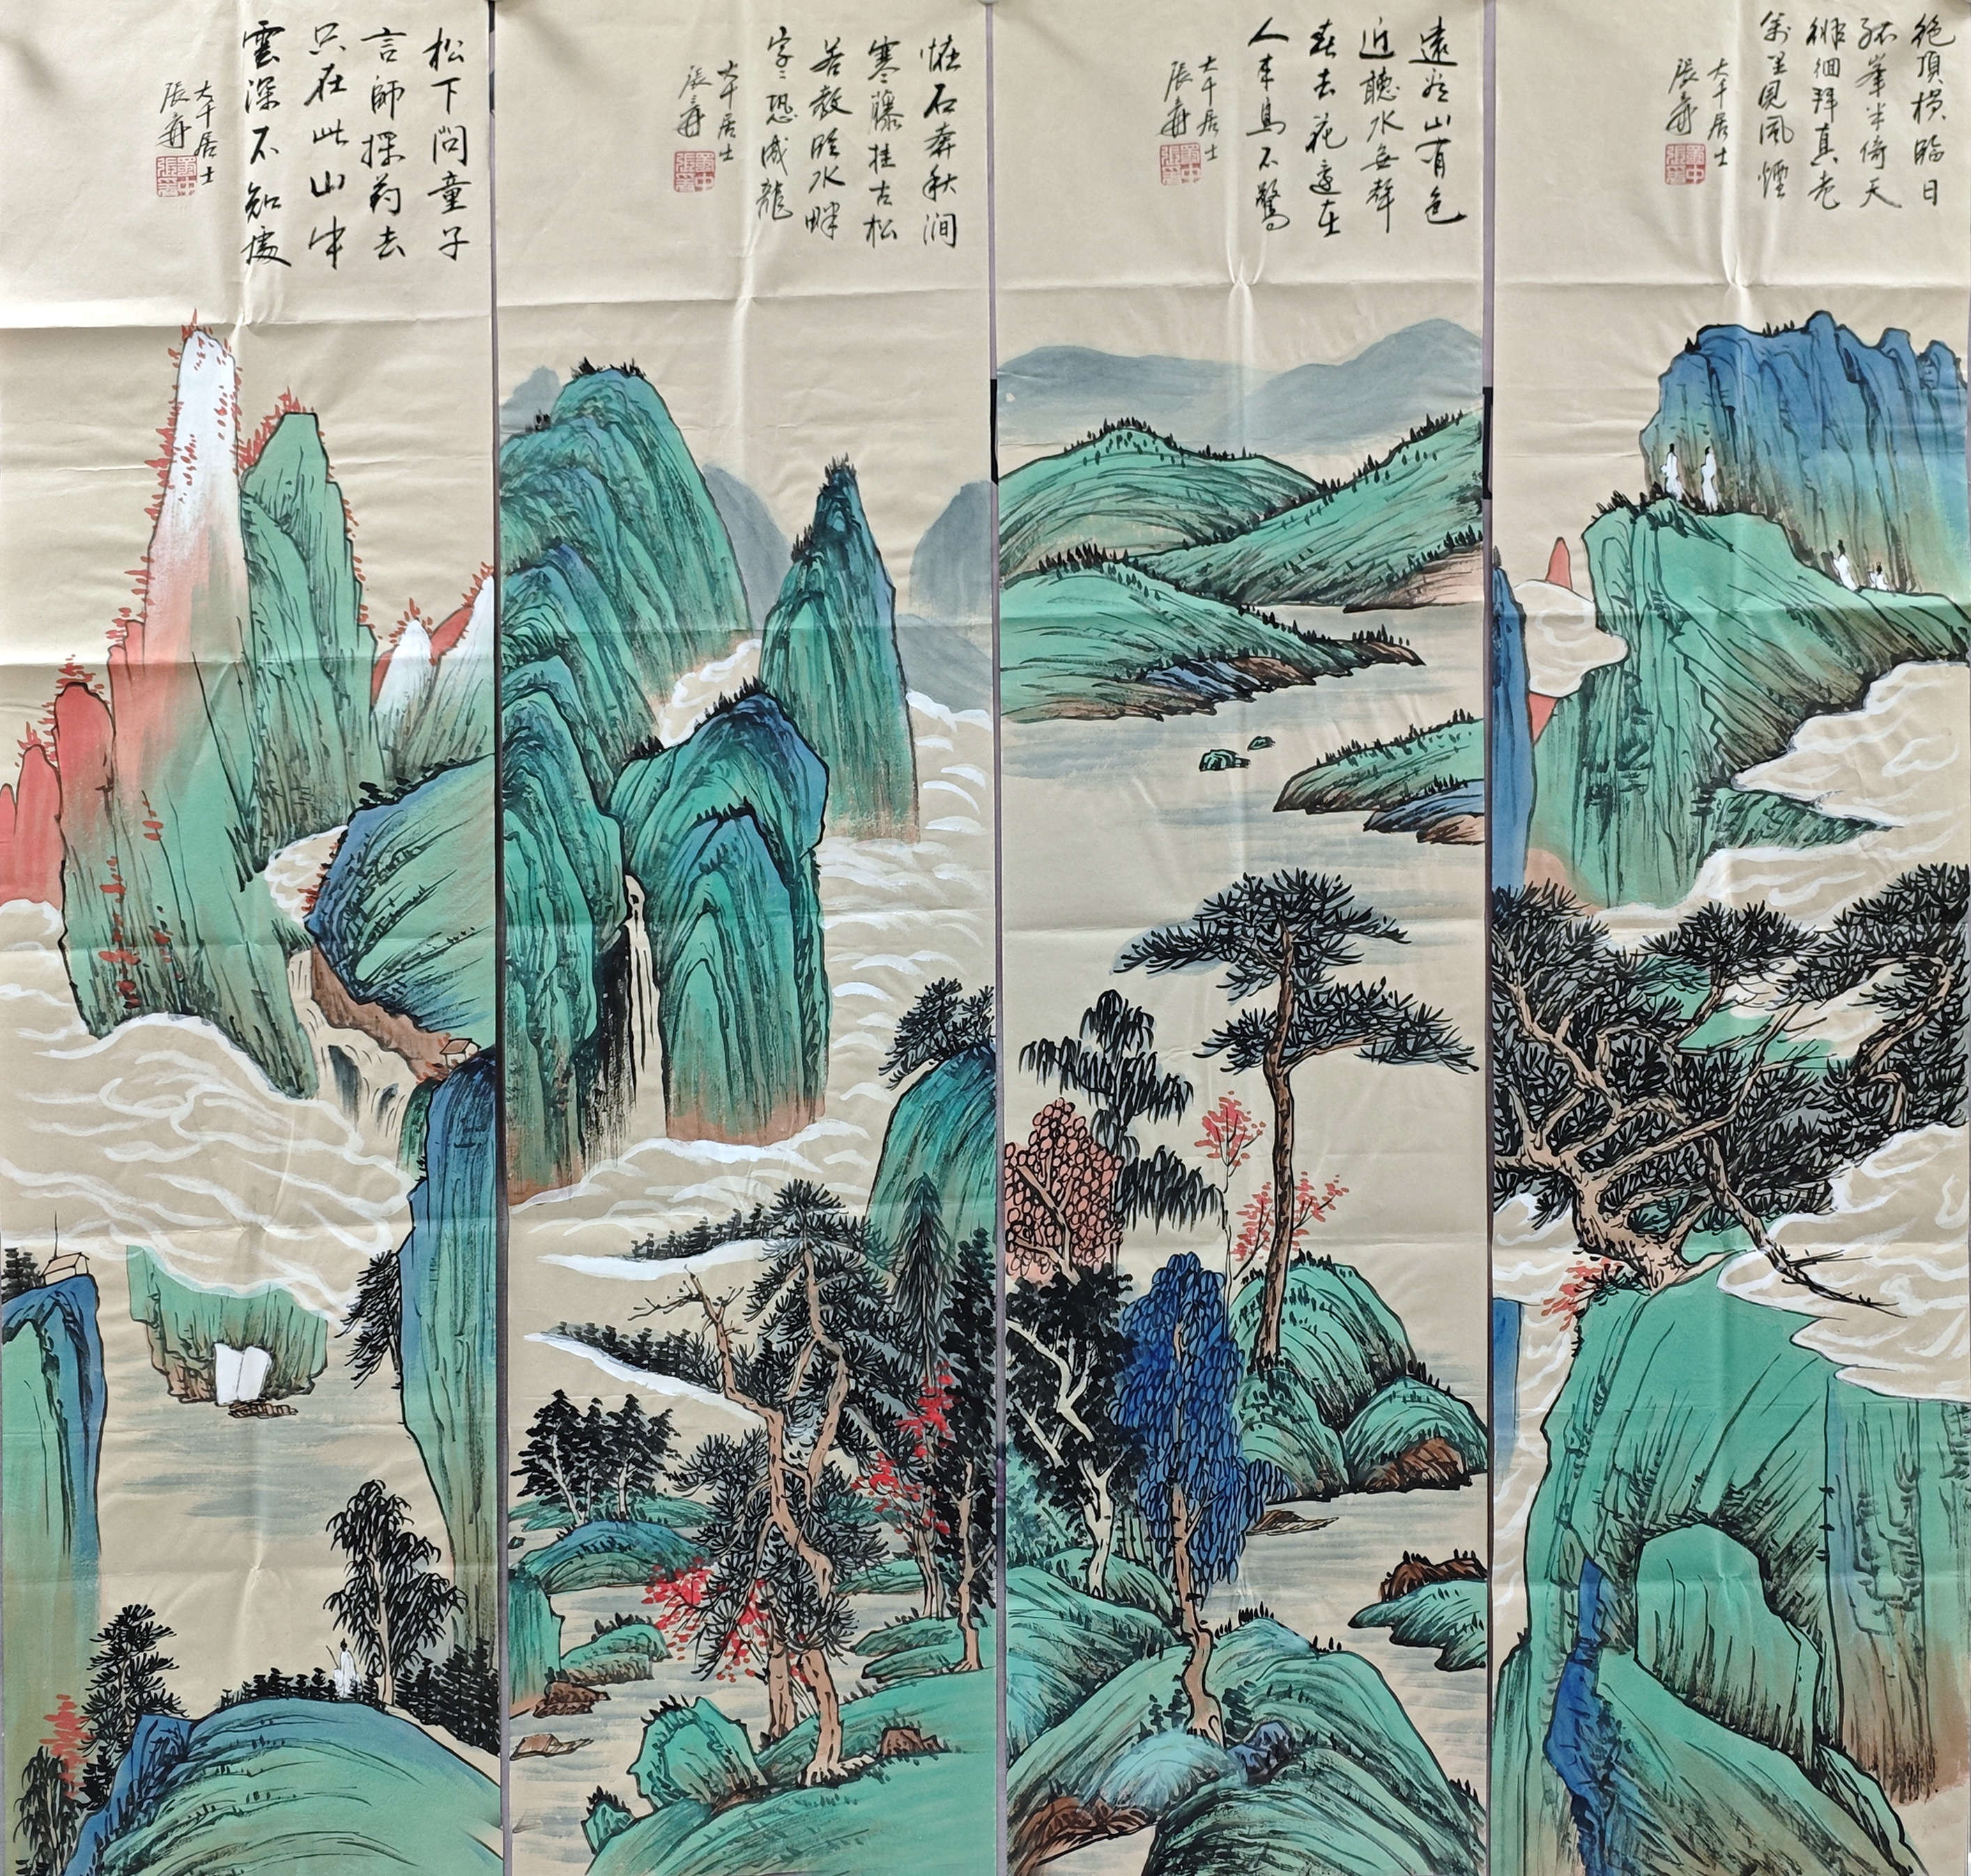 絶頂橫臨日
孤峯半倚天
徘徊拜真老
萬里見風煙
大千居士
張爰
遠看山有色
近聽水無聲
春去花還在
人來鳥不驚
大千居士
張爰
怪石奔秋澗
寒藤挂古松
若教臨水畔
字〻恐成龍
大千居士
張爰
松下問童子
言師採药去
只在此山中
雲深不知處
大千居士
張爰